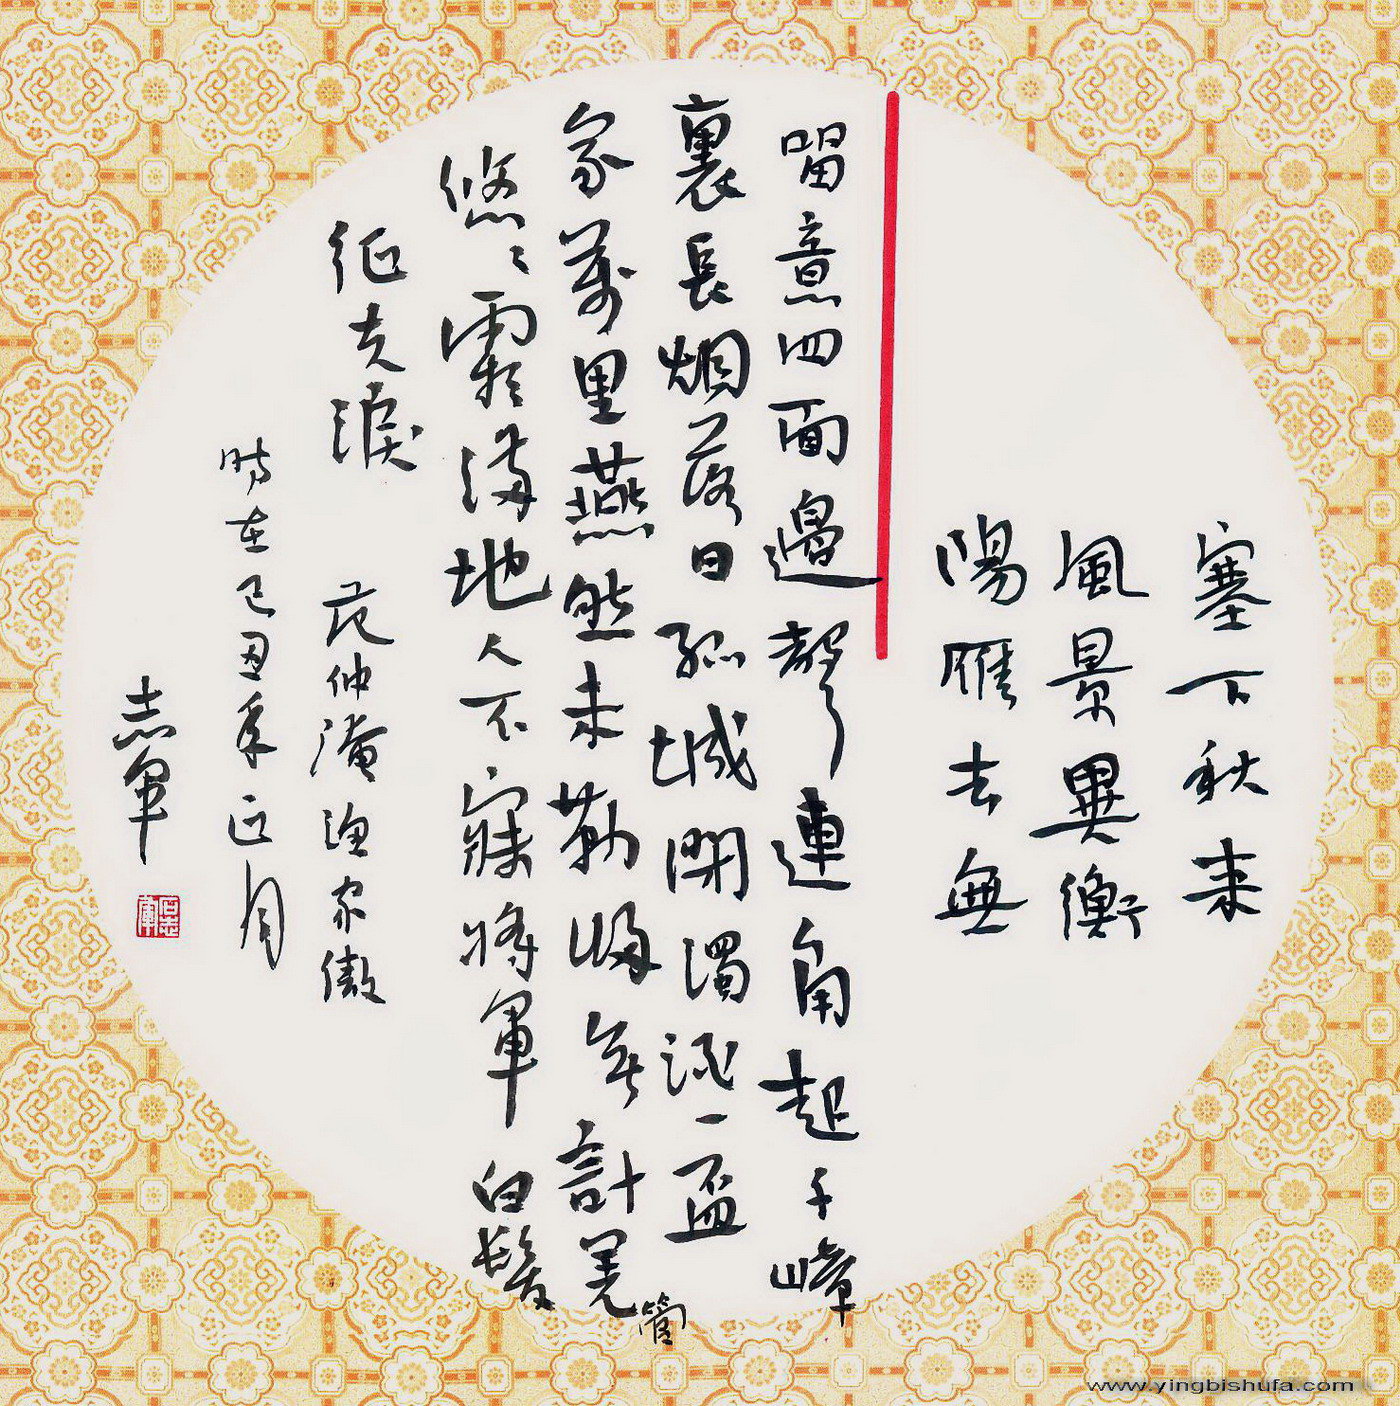 塞下秋来
風景異衡
陽雁去無
留意四面邊聲連角起千嶂
裏長烟落日孤城閉濁酒一盃
家萬里燕然未勒歸無計羌管
悠々霜滿地人不寐將軍白髮
征夫淚 范仲淹漁家傲
時在己丑年正月
志軍
www.yingbishufa.com